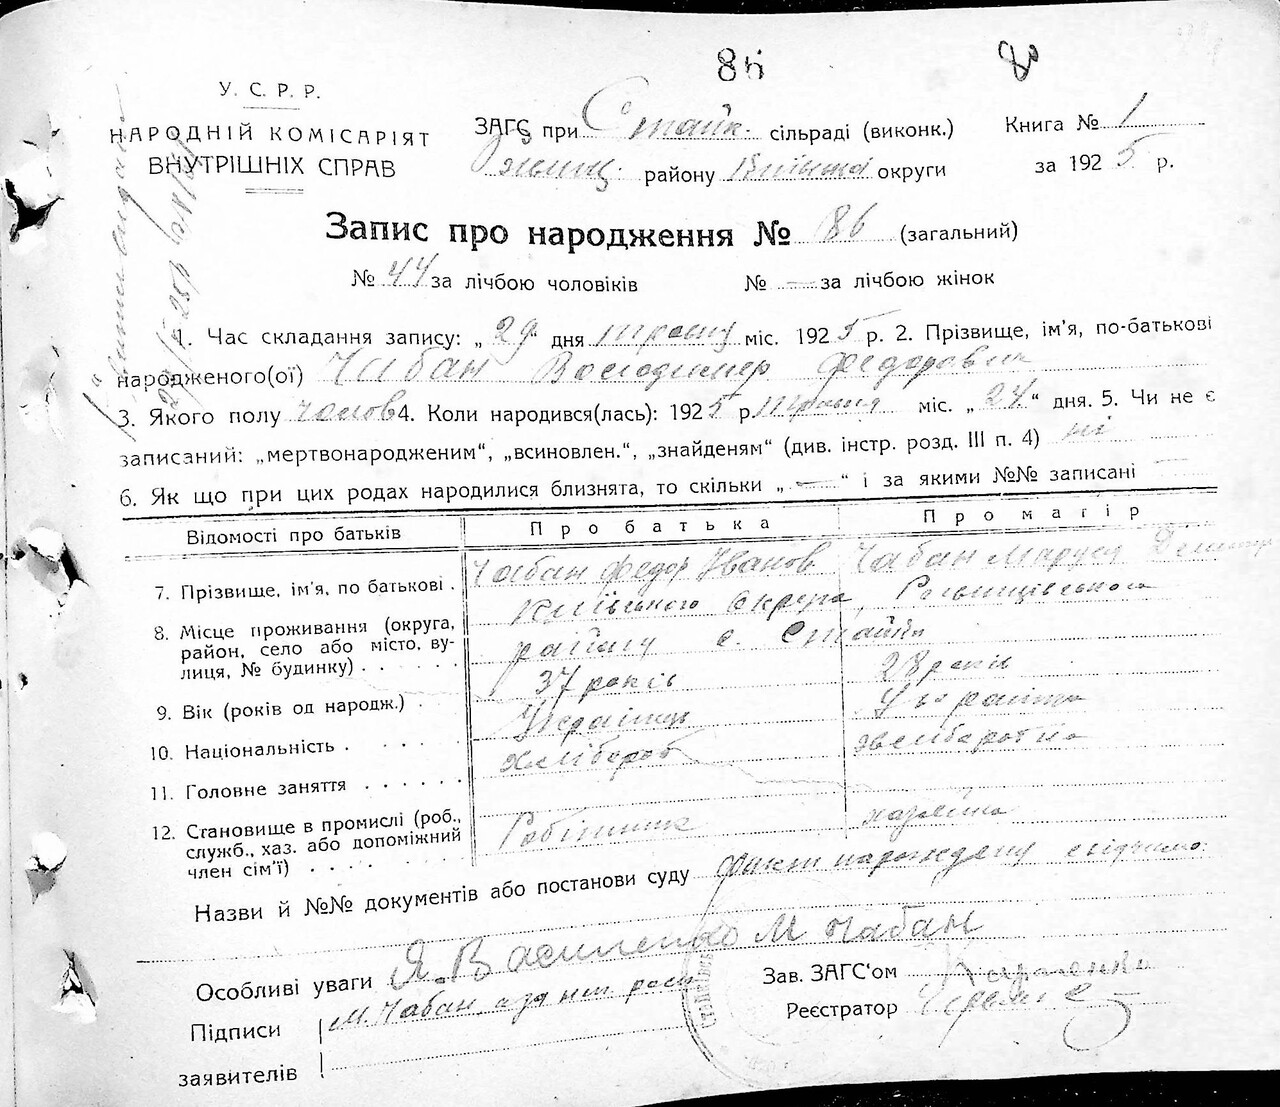 86
У. С. Р. Р.
НАРОДНІЙ КОМІСАРІЯТ
ВНУТРІШНІХ СПРАВ
ЗАГС при Стайк. сільраді (виконк.)
району округи
Книга № 1
за 1925 р.
Запис про народження № 86 (загальний)
№ 44 за лічбою чоловіків № — за лічбою жінок
1. Час складання запису: „29“ дня міс. 1925 р. 2. Прізвище, ім'я, по-батькові
народженого(ої) Чабан Володимер Федорович
3. Якого полу чолов 4. Коли народився(лась): 1925 р. міс. „24“ дня. 5. Чи не є
записаний: „мертвонародженим“, „всиновлен.“, „знайденям“ (див. інстр. розд. III п. 4) ні
6. Як що при цих родах народилися близнята, то скільки „—“ і за якими №№ записані —
Відомості про батьків
Про батька
Про матір
7. Прізвище, ім'я, по батькові .
Чабан Федор Иванов
Чабан Маруся
8. Місце проживання (округа,
район, село або місто, ву-
лиця, № будинку) . . . . .
Київського округа,
району с. Стайки
9. Вік (років од народж.) .
37 років
28 років
10. Національність . . . . .
Українець
Українка
11. Головне заняття . . . . . .
Хлібороб
12. Становище в промислі (роб.,
служб., хаз. або допоміжний
член сім'ї) . . . . .
Робітник
хазяйка
Назви й №№ документів або постанови суду Факт народження свідчимо:
Я. Василенко М Чабан
Особливі уваги
Підписи
заявителів
М. Чабан
Зав. ЗАГС'ом
Реєстратор